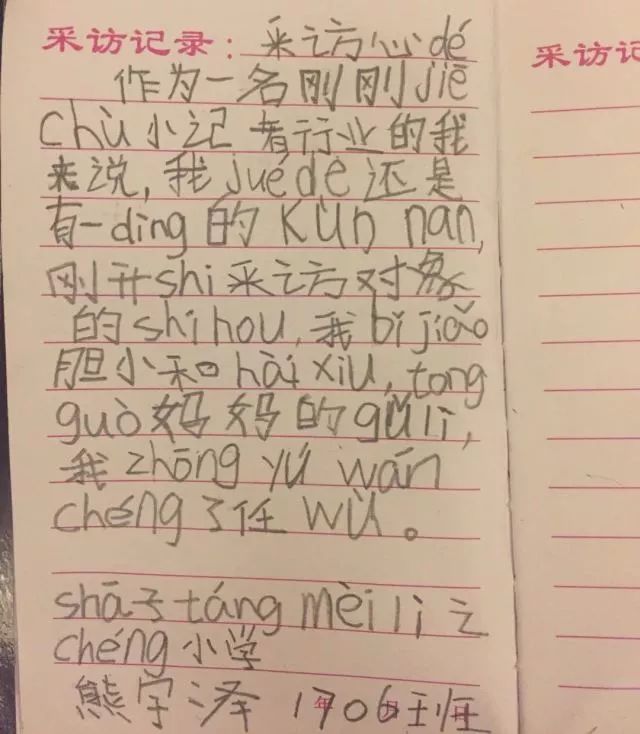 采访记录：采访心dé
作为一名刚刚jiē
chù小记者行业的我
来说，我juéde还是
有一dìng的kùn nan，
刚开shi采访对象
的shí hou，我bǐ jiǎo
胆小和hài xiū，tong
guò妈妈的gǔ lì，
我zhōng yú wán
chéng了任wù。
shā子táng měi lì之
chéng小学
熊学泽 1706班
采访记